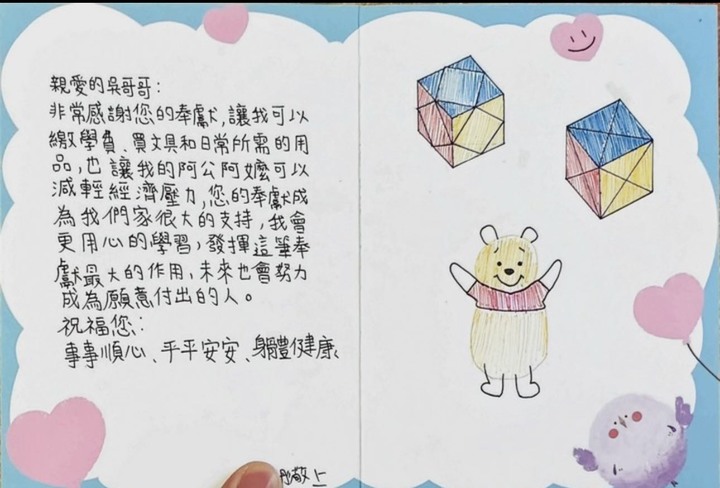 親愛的吳哥哥：
非常感謝您的奉獻，讓我可以
繳學費、買文具和日常所需的用
品，也讓我的阿公阿嬤可以
減輕經濟壓力，您的奉獻成
為我們家很大的支持，我會
更用心的學習，發揮這筆奉
獻最大的作用，未來也會努力
成為願意付出的人。
祝福您：
事事順心、平平安安、身體健康。
敬上